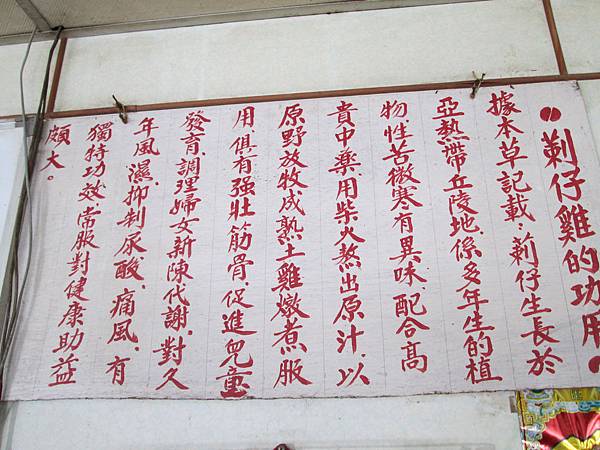 莿仔雞的功用
據本草記載:莿仔生長於
亞熱帶丘陵地、係多年生的植
物、性苦微寒有異味、配合高
貴中藥用柴火熬出原汁、以
原野放牧成熟土雞燉煮服
用、俱有强壯筋骨、促進兒童
發育、調理婦女新陳代謝、對久
年風濕、抑制尿酸、痛風、有
獨特功效常服對健康助益
頗大。